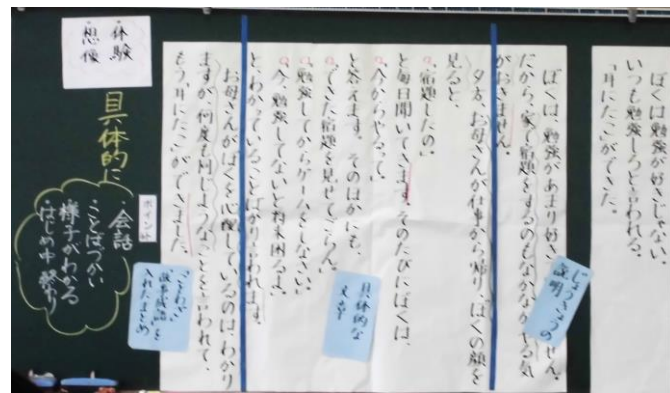 ぼくは勉強が好きじゃない。
いつも勉強しろって言われる。
「耳にたこ」ができた。
ぼくは、勉強があまり好きません。
だから、家で宿題をするのもなかなかやる気
がおきません。
じょうきょうの
説明
夕方、お母さんが仕事から帰り、ぼくの顔を
見ると、
「宿題したの。」
と毎日聞いてきます。そのたびにぼくは、
「今からやるって。」
と答えます。そのほかにも、
「できた宿題を見せてごらん。」
「勉強してからゲームをしなさい。」
「今、勉強してないと将来困るよ。」
と、わかっていることばかり言われます。
具体的な
お母さんがぼくを心配しているのは、わかり
ますが、何度も同じようなことを言われて、
もう、「耳にたこ」ができました。
ことわざ
故事成語を
入れたまとめ
・体験
・想像
具体的に
ポイント
・会話
ことばづかい
様子がわかる
・はじめ中終わり